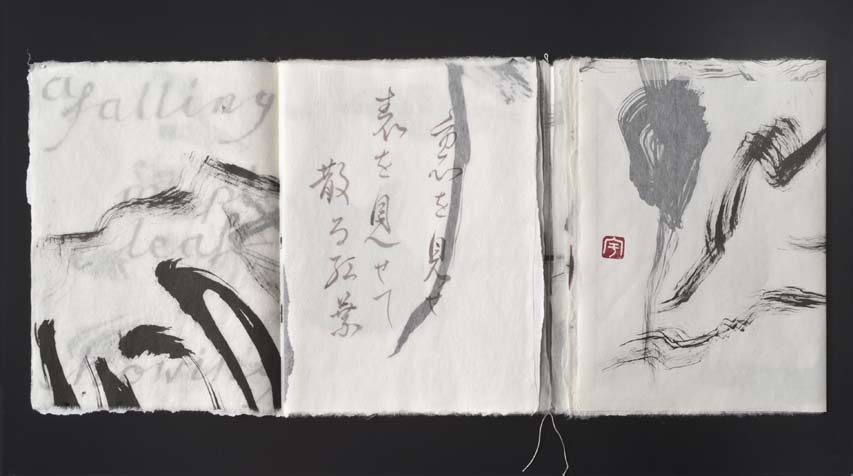 a
falling
leaf
裏を見せ
表を見せて
散る紅葉
宇